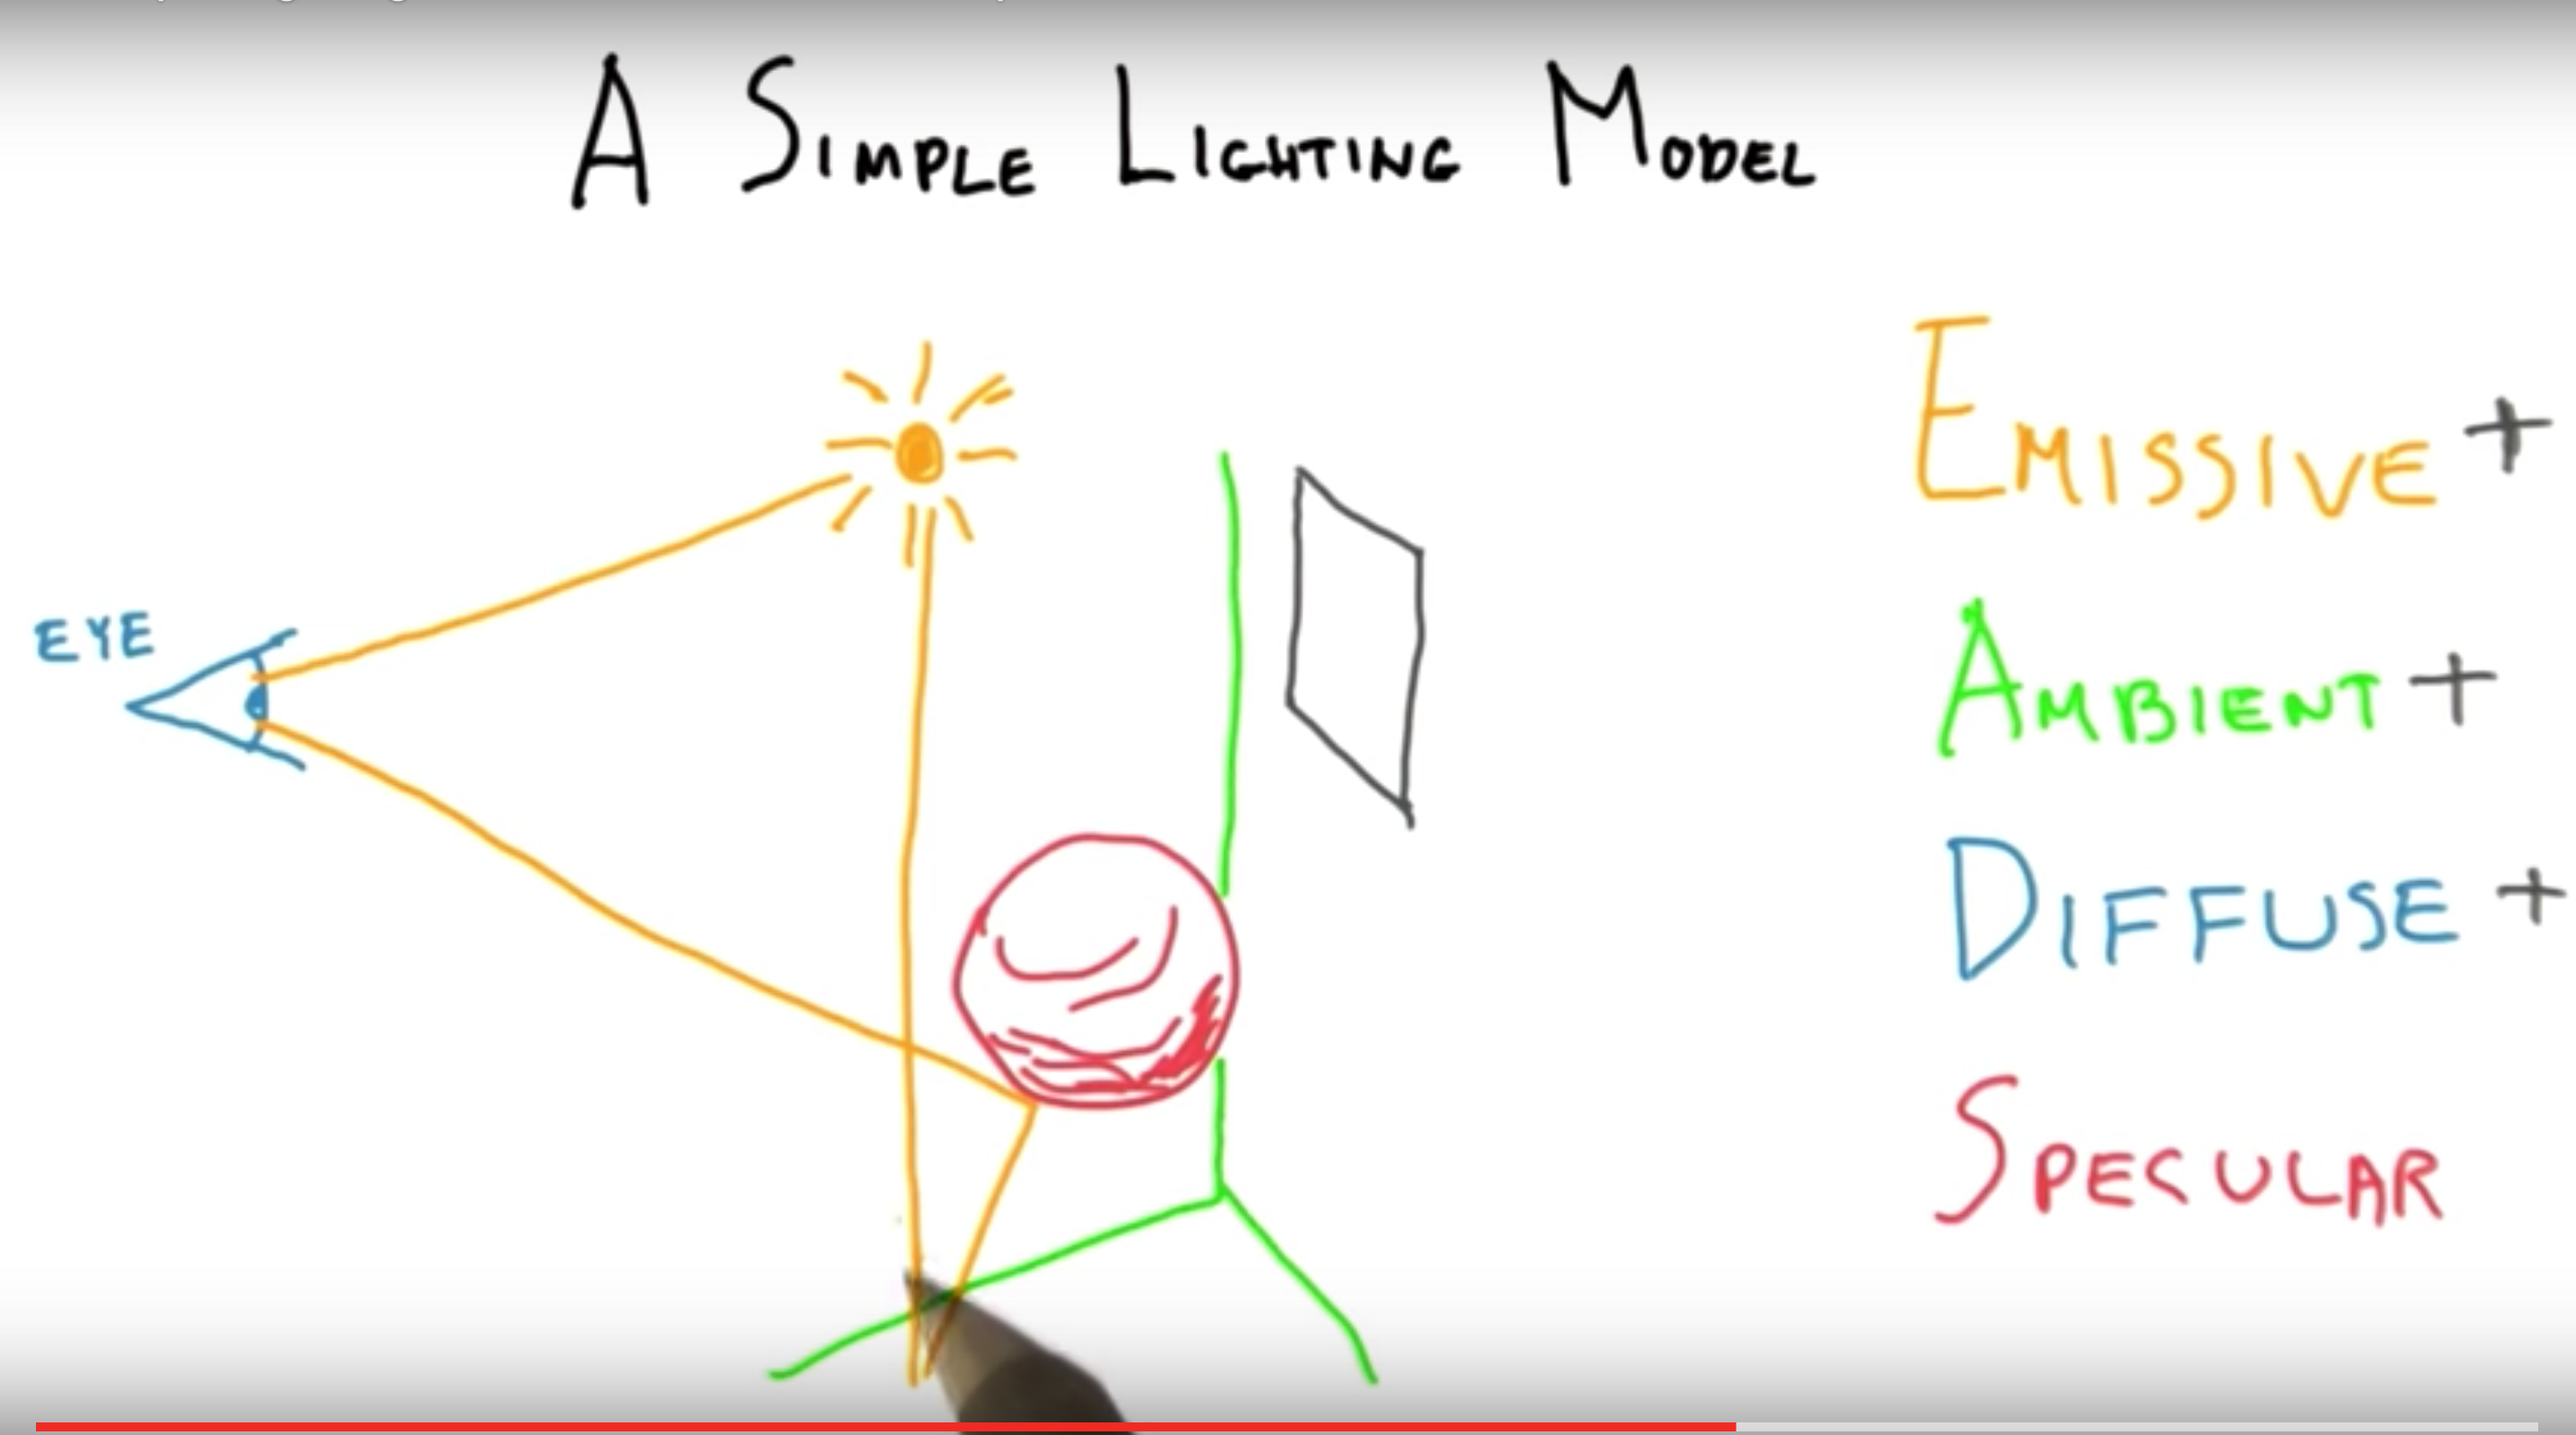 A SIMPLE LIGHTING MODEL
EYE
EMISSIVE +
AMBIENT +
DIFFUSE +
SPECULAR